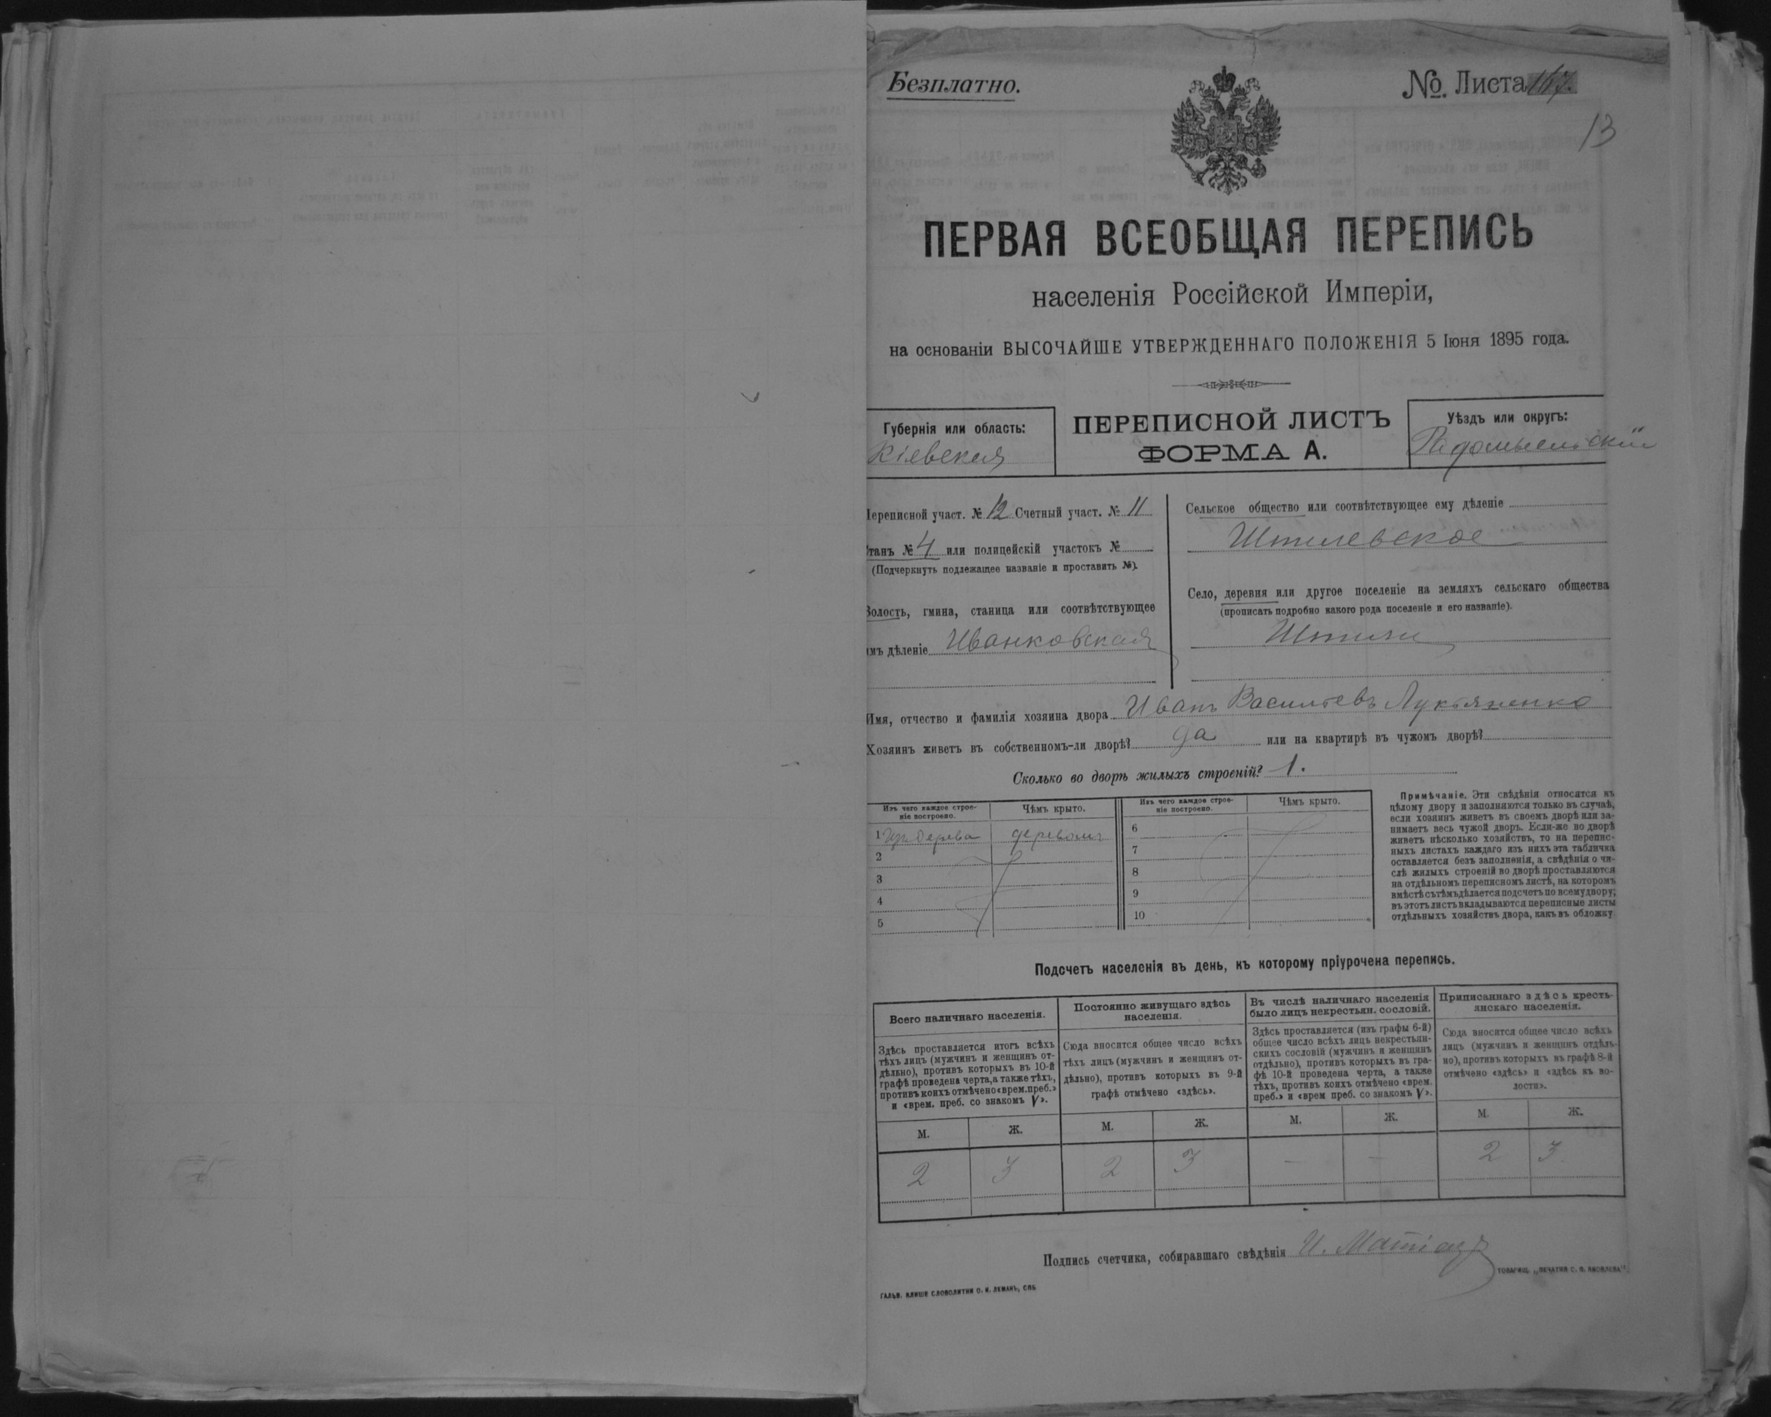 Безплатно.
№. Листа 147.
13
ПЕРВАЯ ВСЕОБЩАЯ ПЕРЕПИСЬ
населенія Россійской Имперіи,
на основаніи ВЫСОЧАЙШЕ УТВЕРЖДЕННАГО ПОЛОЖЕНІЯ 5 Іюня 1895 года.
Губернія или область:
Кіевская
ПЕРЕПИСНОЙ ЛИСТЪ
ФОРМА А.
Уѣздъ или округъ:
Радомысльскій
Переписной участ. № 12 Счетный участ. № 11
Станъ № 4 или полицейскій участокъ №
(Подчеркнуть подлежащее названіе и проставить №).
Волость, гмина, станица или соотвѣтствующее
имъ дѣленіе Иванковская
Сельское общество или соотвѣтствующее ему дѣленіе
Шпилевское
Село, деревня или другое поселеніе на земляхъ сельскаго общества
(прописать подробно какого рода поселеніе и его названіе).
Шпили
Имя, отчество и фамилія хозяина двора Иванъ Васильевъ Лукьяненко
Хозяинъ живетъ въ собственномъ-ли дворѣ? да или на квартирѣ въ чужомъ дворѣ?
Сколько во дворѣ жилыхъ строеній? 1.
Изъ чего каждое строе-
ніе построено.
Чѣмъ крыто.
Изъ чего каждое строе-
ніе построено.
Чѣмъ крыто.
1 Изъ дерева деревомъ
2
3
4
5
6
7
8
9
10
Примѣчаніе. Эти свѣдѣнія относятся къ
цѣлому двору и заполняются только въ случаѣ,
если хозяинъ живетъ въ своемъ дворѣ или за-
нимаетъ весь чужой дворъ. Если-же во дворѣ
живетъ нѣсколько хозяйствъ, то на перепис-
ныхъ листахъ каждаго изъ нихъ эта табличка
оставляется безъ заполненія, а свѣдѣнія о чи-
слѣ жилыхъ строеній во дворѣ проставляются
на отдѣльномъ переписномъ листѣ, на которомъ
вмѣстѣ съ тѣмъ дѣлается подсчетъ по всему двору;
въ этотъ листъ вкладываются переписные листы
отдѣльныхъ хозяйствъ двора, какъ въ обложку
Подсчетъ населенія въ день, къ которому пріурочена перепись.
Всего наличнаго населенія.
Здѣсь проставляется итогъ всѣхъ
тѣхъ лицъ (мужчинъ и женщинъ от-
дѣльно), противъ которыхъ въ 10-й
графѣ проведена черта, а также тѣхъ,
противъ коихъ отмѣчено «врем. преб.»
и «врем. преб. со знакомъ V».
Постоянно живущаго здѣсь
населенія.
Сюда вносится общее число всѣхъ
тѣхъ лицъ (мужчинъ и женщинъ от-
дѣльно), противъ которыхъ въ 9-й
графѣ отмѣчено «здѣсь».
Въ числѣ наличнаго населенія
было лицъ некрестьян. сословій.
Здѣсь проставляется (изъ графы 6-й)
общее число всѣхъ лицъ некрестьян-
скихъ сословій (мужчинъ и женщинъ
отдѣльно), противъ которыхъ въ гра-
фѣ 10-й проведена черта, а также
тѣхъ, противъ коихъ отмѣчено «врем.
преб.» и «врем преб. со знакомъ V».
Приписаннаго здѣсь кресть-
янскаго населенія.
Сюда вносится общее число всѣхъ
лицъ (мужчинъ и женщинъ отдѣль-
но), противъ которыхъ въ графѣ 8-й
отмѣчено «здѣсь» и «здѣсь въ во-
лости».
М. Ж. М. Ж. М. Ж. М. Ж.
2 3 2 3 — — 2 3
Подпись счетчика, собиравшаго свѣдѣнія И.
ГАЛЬВ. КЛИШЕ СЛОВОЛИТНИ О. И. ЛЕМАНЪ, СПБ
ТОВАРИЩ. „ПЕЧАТНЯ С. П. ЯКОВЛЕВА“.